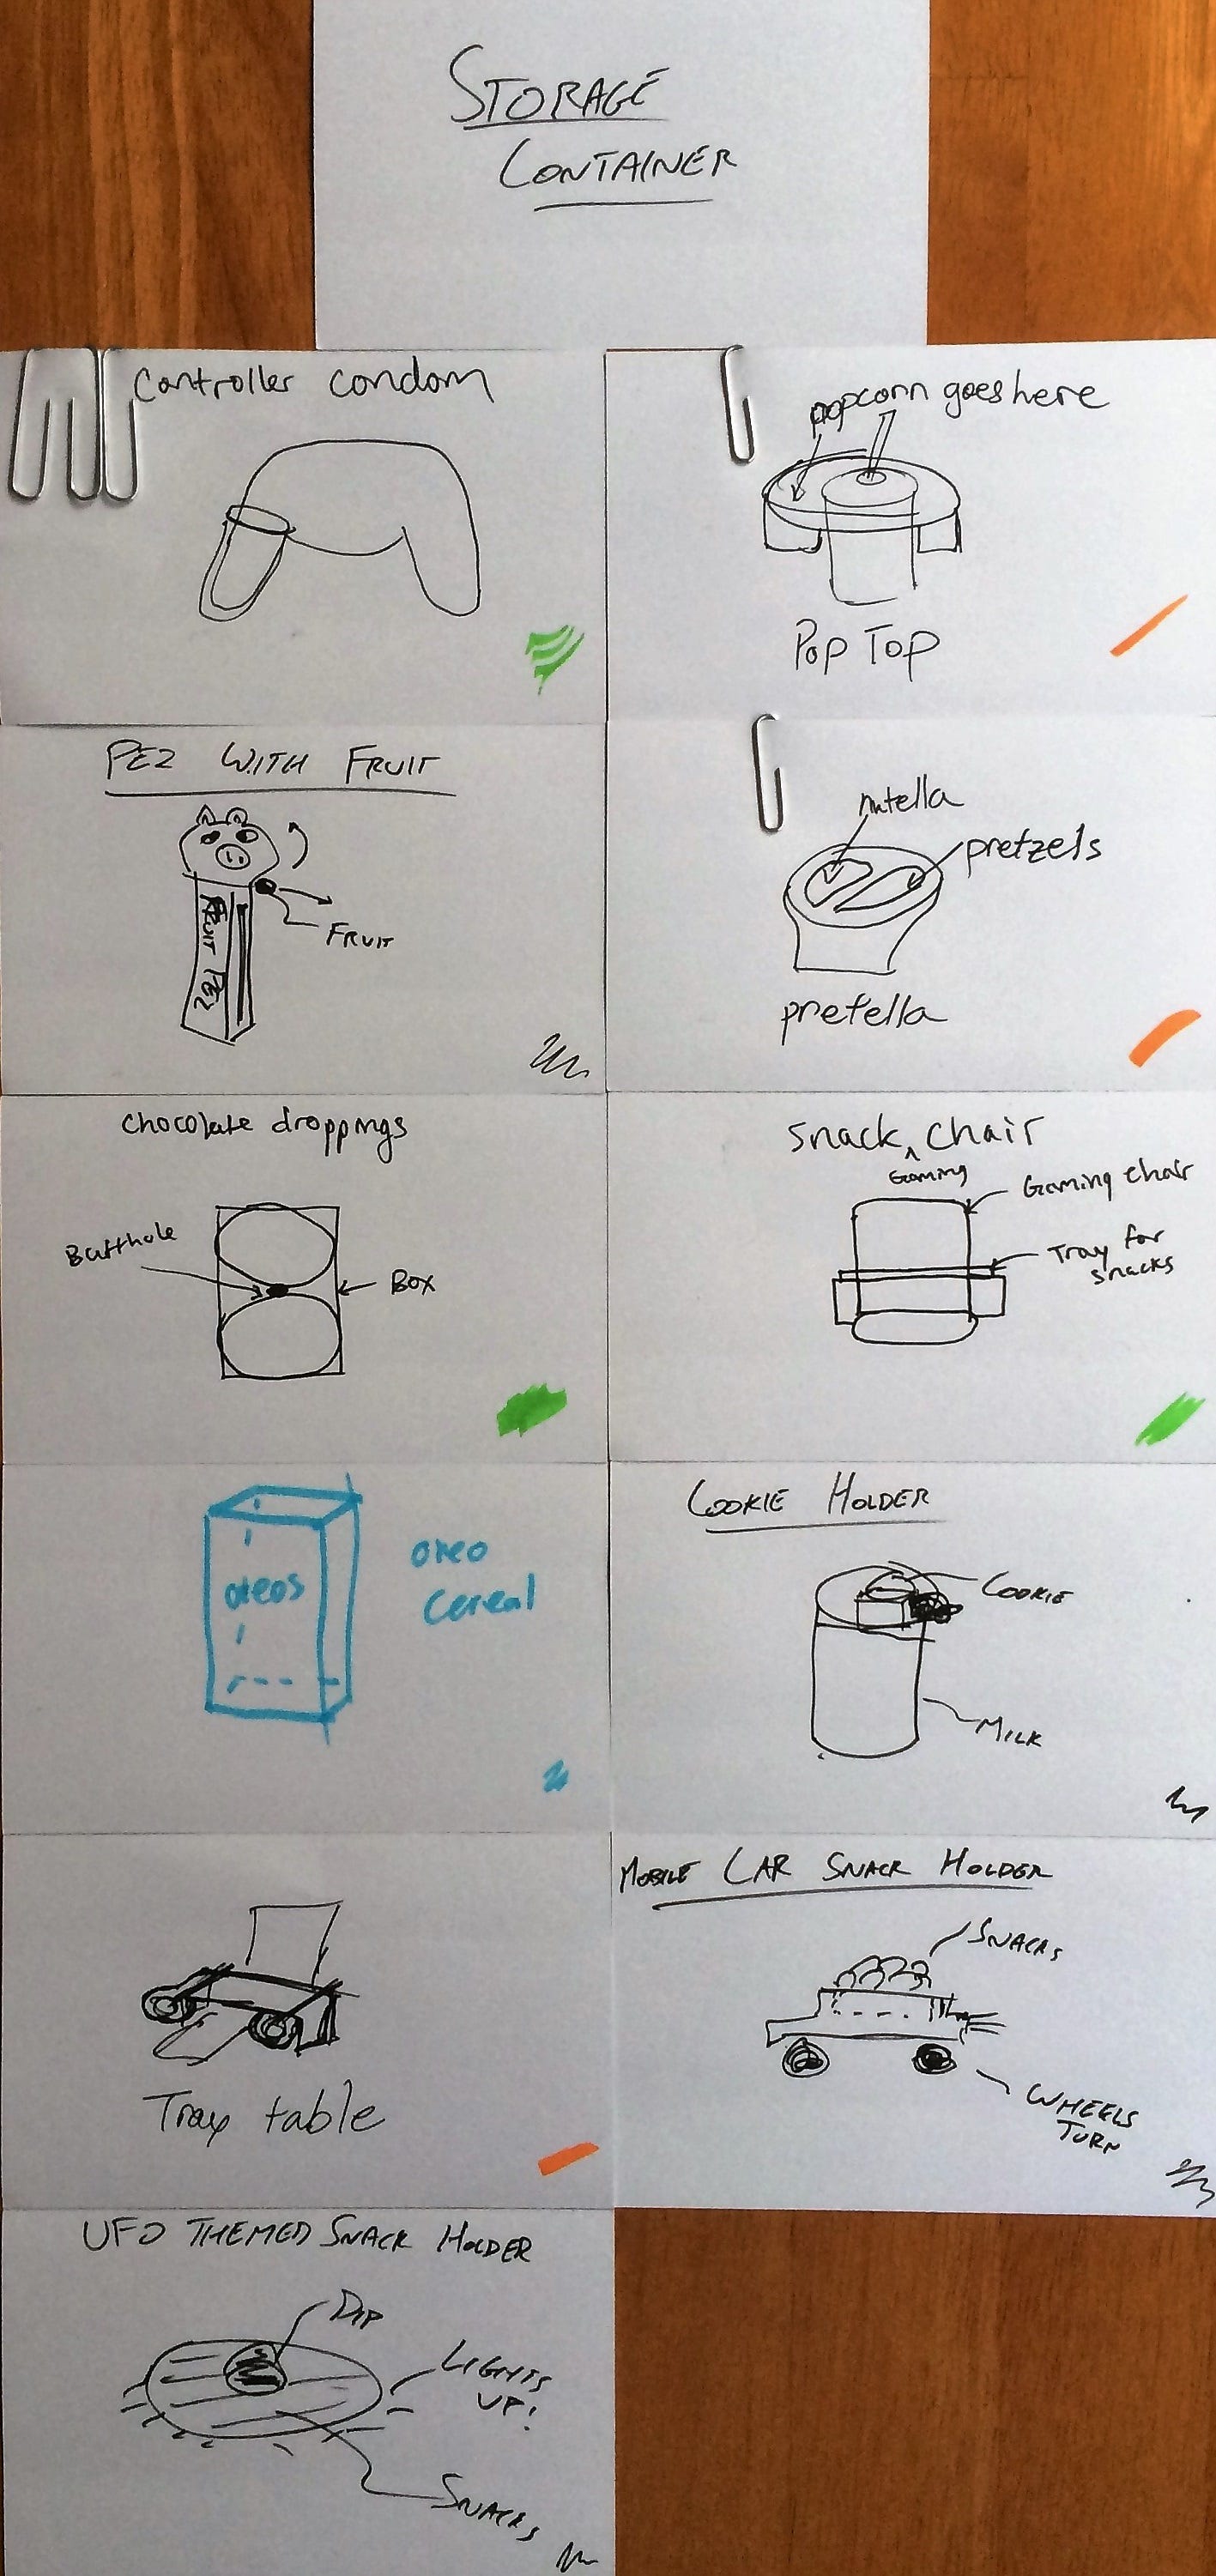 STORAGE
CONTAINER
Controller condom
popcorn goes here
Pop Top
PEZ WITH FRUIT
FRUIT
FRUIT PEZ
nutella
pretzels
pretella
chocolate droppings
Butthole
BOX
snack ^ chair
Gaming
Gaming chair
Tray for
snacks
oreos
oreo
cereal
COOKIE HOLDER
COOKIE
MILK
Tray table
MOBILE CAR SNACK HOLDER
SNACKS
WHEELS
TURN
UFO THEMED SNACK HOLDER
DIP
LIGHTS
UP!
SNACKS